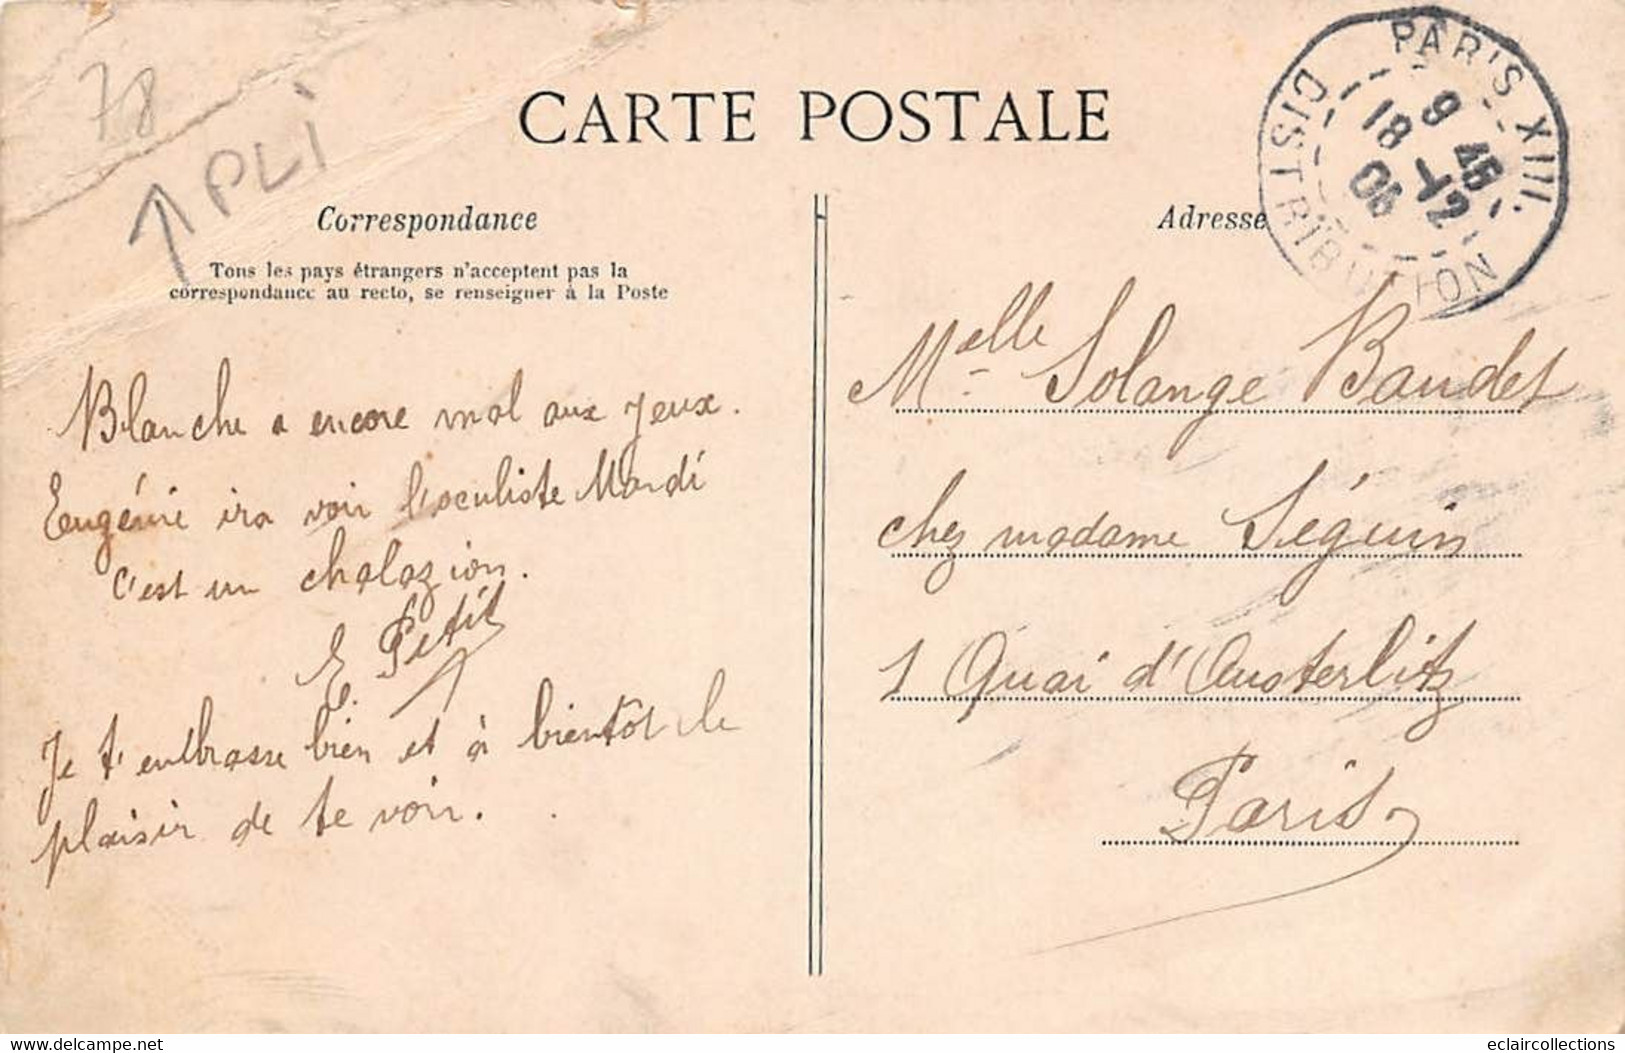 78
PLI
CARTE POSTALE
PARIS XIII.
9 45
18 -12
06
DISTRIBUTION
Correspondance
Adresse
Tous les pays étrangers n'acceptent pas la
correspondance au recto, se renseigner à la Poste
Blanche a encore mal aux yeux.
Eugénie ira voir l'oculiste Mardi
c'est un chalazion.
E. Petit
Je t'embrasse bien et à bientôt le
plaisir de te voir.
Melle Solange Baudet
chez madame Séguin
1 Quai d'Austerlitz
Paris
eclaircollections